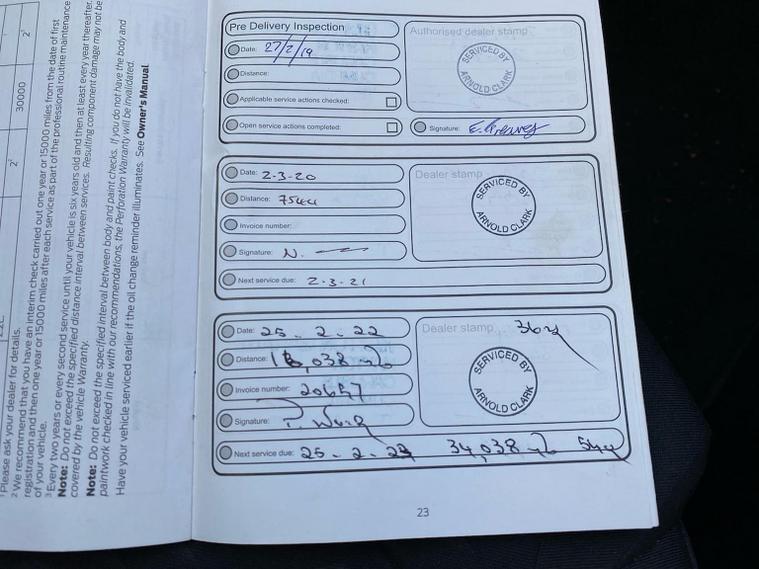 30000
2¹
Please ask your dealer for details.
² We recommend that you have an interim check carried out one year or 15000 miles from the date of first
registration and then one year or 15000 miles after each service as part of the professional routine maintenance
of your vehicle.
³ Every two years or every second service until your vehicle is six years old and then at least every year thereafter.
Note: Do not exceed the specified distance interval between services. Resulting component damage may not be
covered by the vehicle Warranty.
Note: Do not exceed the specified interval between body and paint checks. If you do not have the body and
paintwork checked in line with our recommendations, the Perforation Warranty will be invalidated.
Have your vehicle serviced earlier if the oil change reminder illuminates. See Owner's Manual
Pre Delivery Inspection
Authorised dealer stamp
Date: 27/2/19
SERVICED BY
ARNOLD CLARK
Distance:
Applicable service actions checked:
Open service actions completed:
Signature:
Date: 2-3-20
Dealer stamp
Distance: 7544
SERVICED BY
ARNOLD CLARK
Invoice number:
Signature: N.
Next service due: 2-3-21
Date: 25-2-22
Dealer stamp
Distance: ,038
SERVICED BY
ARNOLD CLARK
Invoice number:
Signature:
Next service due: 25-2-23 34,038
23